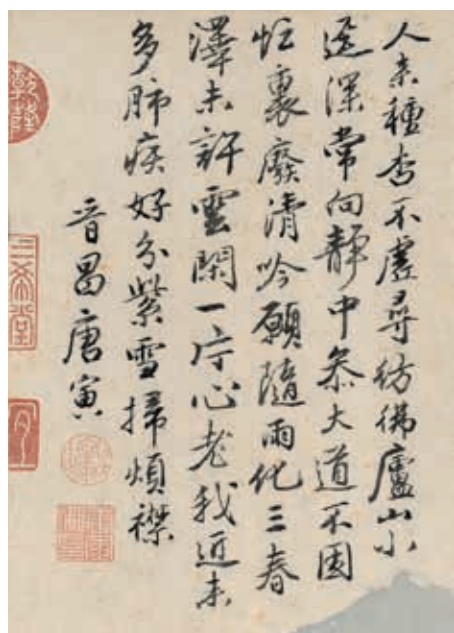 人来種杏不虛尋彷彿廬山小
逕深常向靜中叅大道不因
忙裏廢清吟願隨雨化三春
澤未許雲閑一片心老我近来
多肺疾好分紫雪掃煩襟
晉昌唐寅
三希堂